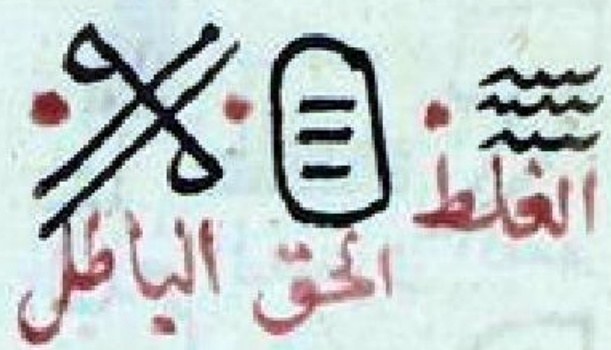 الغلط الحق الباطل